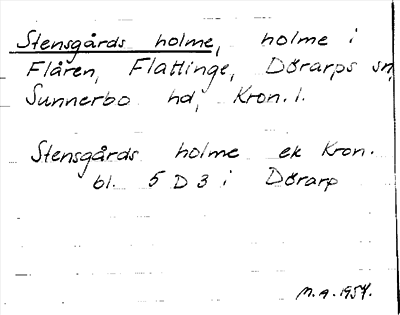 Stensgårds holme, holme i
Flåren, Flattinge, Dörarps sn,
Sunnerbo hd, Kron. l.
Stensgårds holme ek Kron.
bl. 5 D 3 i Dörarp
M.A. 1954.